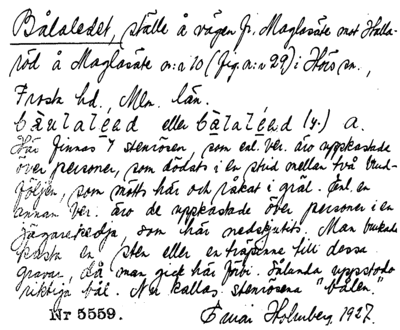 Bålaledet, ställe å vägen fr. Maglasäte mot Halla-
röd å Maglasäte n:o 10 (fig n:o 29) i Hörs sn.,
Frosta hd., Mlm. län.
eller a.
Här finnas 7 stenrösen, som enl. ber. äro uppkastade
över personer, som dödats i en strid mellan två brud-
följen, som mötts här och råkat i gräl. Enl. en
annan ber. äro de uppkastade över personer i en
jägarekedja, som här nedskjutits. Man brukade
kasta en sten eller en träpinne till dessa
gravar, då man gick här förbi. Sålunda uppstodo
riktiga bål. Nu kallas stenrösena "bålen."
Nr 5559. Holmberg, 1927.